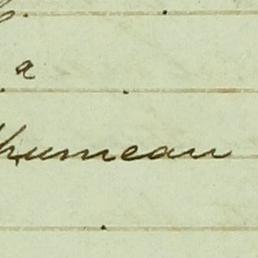 a
humeau